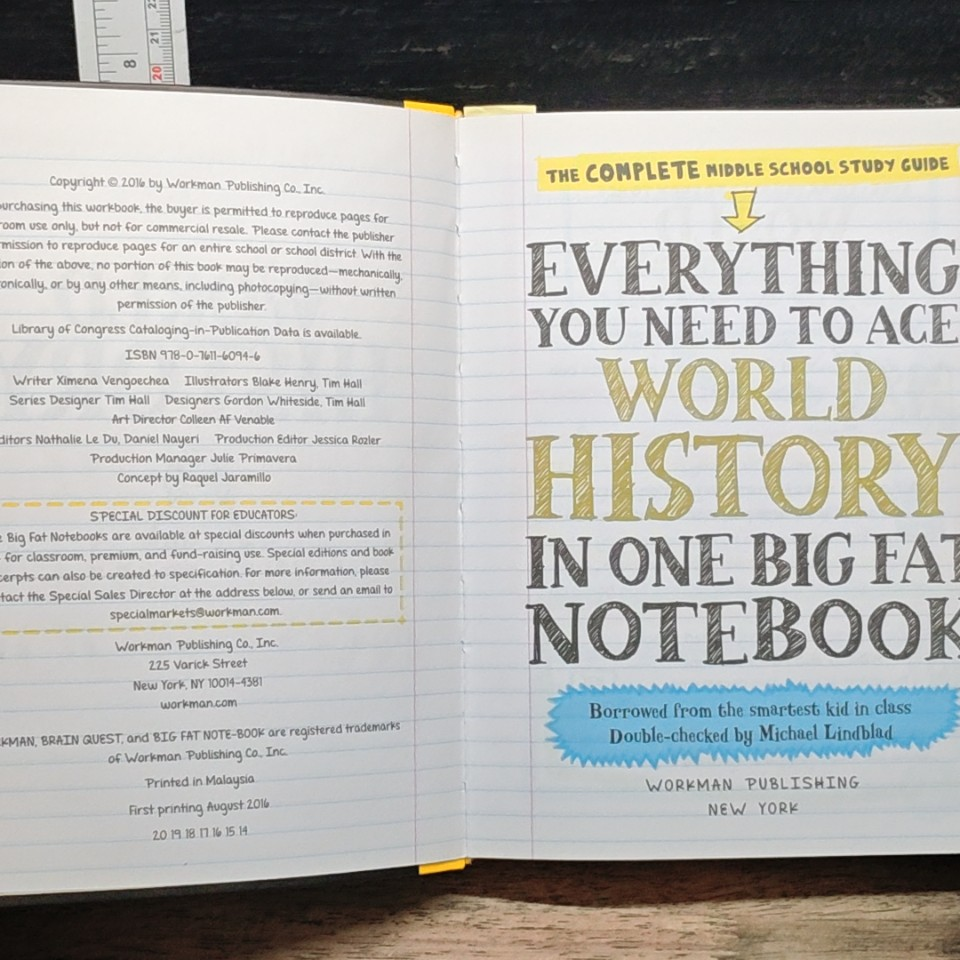 8
20
21
22
Copyright © 2016 by Workman Publishing Co., Inc.
urchasing this workbook, the buyer is permitted to reproduce pages for
room use only, but not for commercial resale. Please contact the publisher
mission to reproduce pages for an entire school or school district. With the
on of the above, no portion of this book may be reproduced—mechanically,
onically, or by any other means, including photocopying—without written
permission of the publisher.
Library of Congress Cataloging-in-Publication Data is available.
ISBN 978-0-7611-6094-6
Writer Ximena Vengoechea Illustrators Blake Henry, Tim Hall
Series Designer Tim Hall Designers Gordon Whiteside, Tim Hall
Art Director Colleen AF Venable
ditors Nathalie Le Du, Daniel Nayeri Production Editor Jessica Rozler
Production Manager Julie Primavera
Concept by Raquel Jaramillo
SPECIAL DISCOUNT FOR EDUCATORS
e Big Fat Notebooks are available at special discounts when purchased in
for classroom, premium, and fund-raising use. Special editions and book
cerpts can also be created to specification. For more information, please
tact the Special Sales Director at the address below, or send an email to
specialmarkets@workman.com.
Workman Publishing Co., Inc.
225 Varick Street
New York, NY 10014-4381
workman.com
KMAN, BRAIN QUEST, and BIG FAT NOTE-BOOK are registered trademarks
of Workman Publishing Co., Inc.
Printed in Malaysia
First printing August 2016
20 19 18 17 16 15 14
THE COMPLETE MIDDLE SCHOOL STUDY GUIDE
EVERYTHING
YOU NEED TO ACE
WORLD
HISTORY
IN ONE BIG FAT
NOTEBOOK
Borrowed from the smartest kid in class
Double-checked by Michael Lindblad
WORKMAN PUBLISHING
NEW YORK